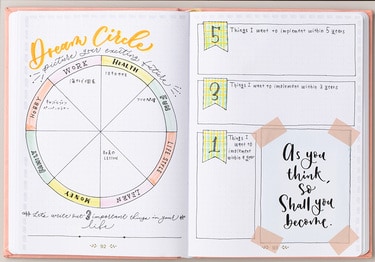 Dream Circle
picture your exciting future
WORK
HEALTH
LIFE STYLE
LEARN
MONEY
FAMILY
HOBBY
Let's write out 3 important things in your
life
5
Things I want to implement within 5 years
3
Things I want to implement within 3 years
1
Things I want
to implement
within 1 year
As you
think,
so
Shall you
become.